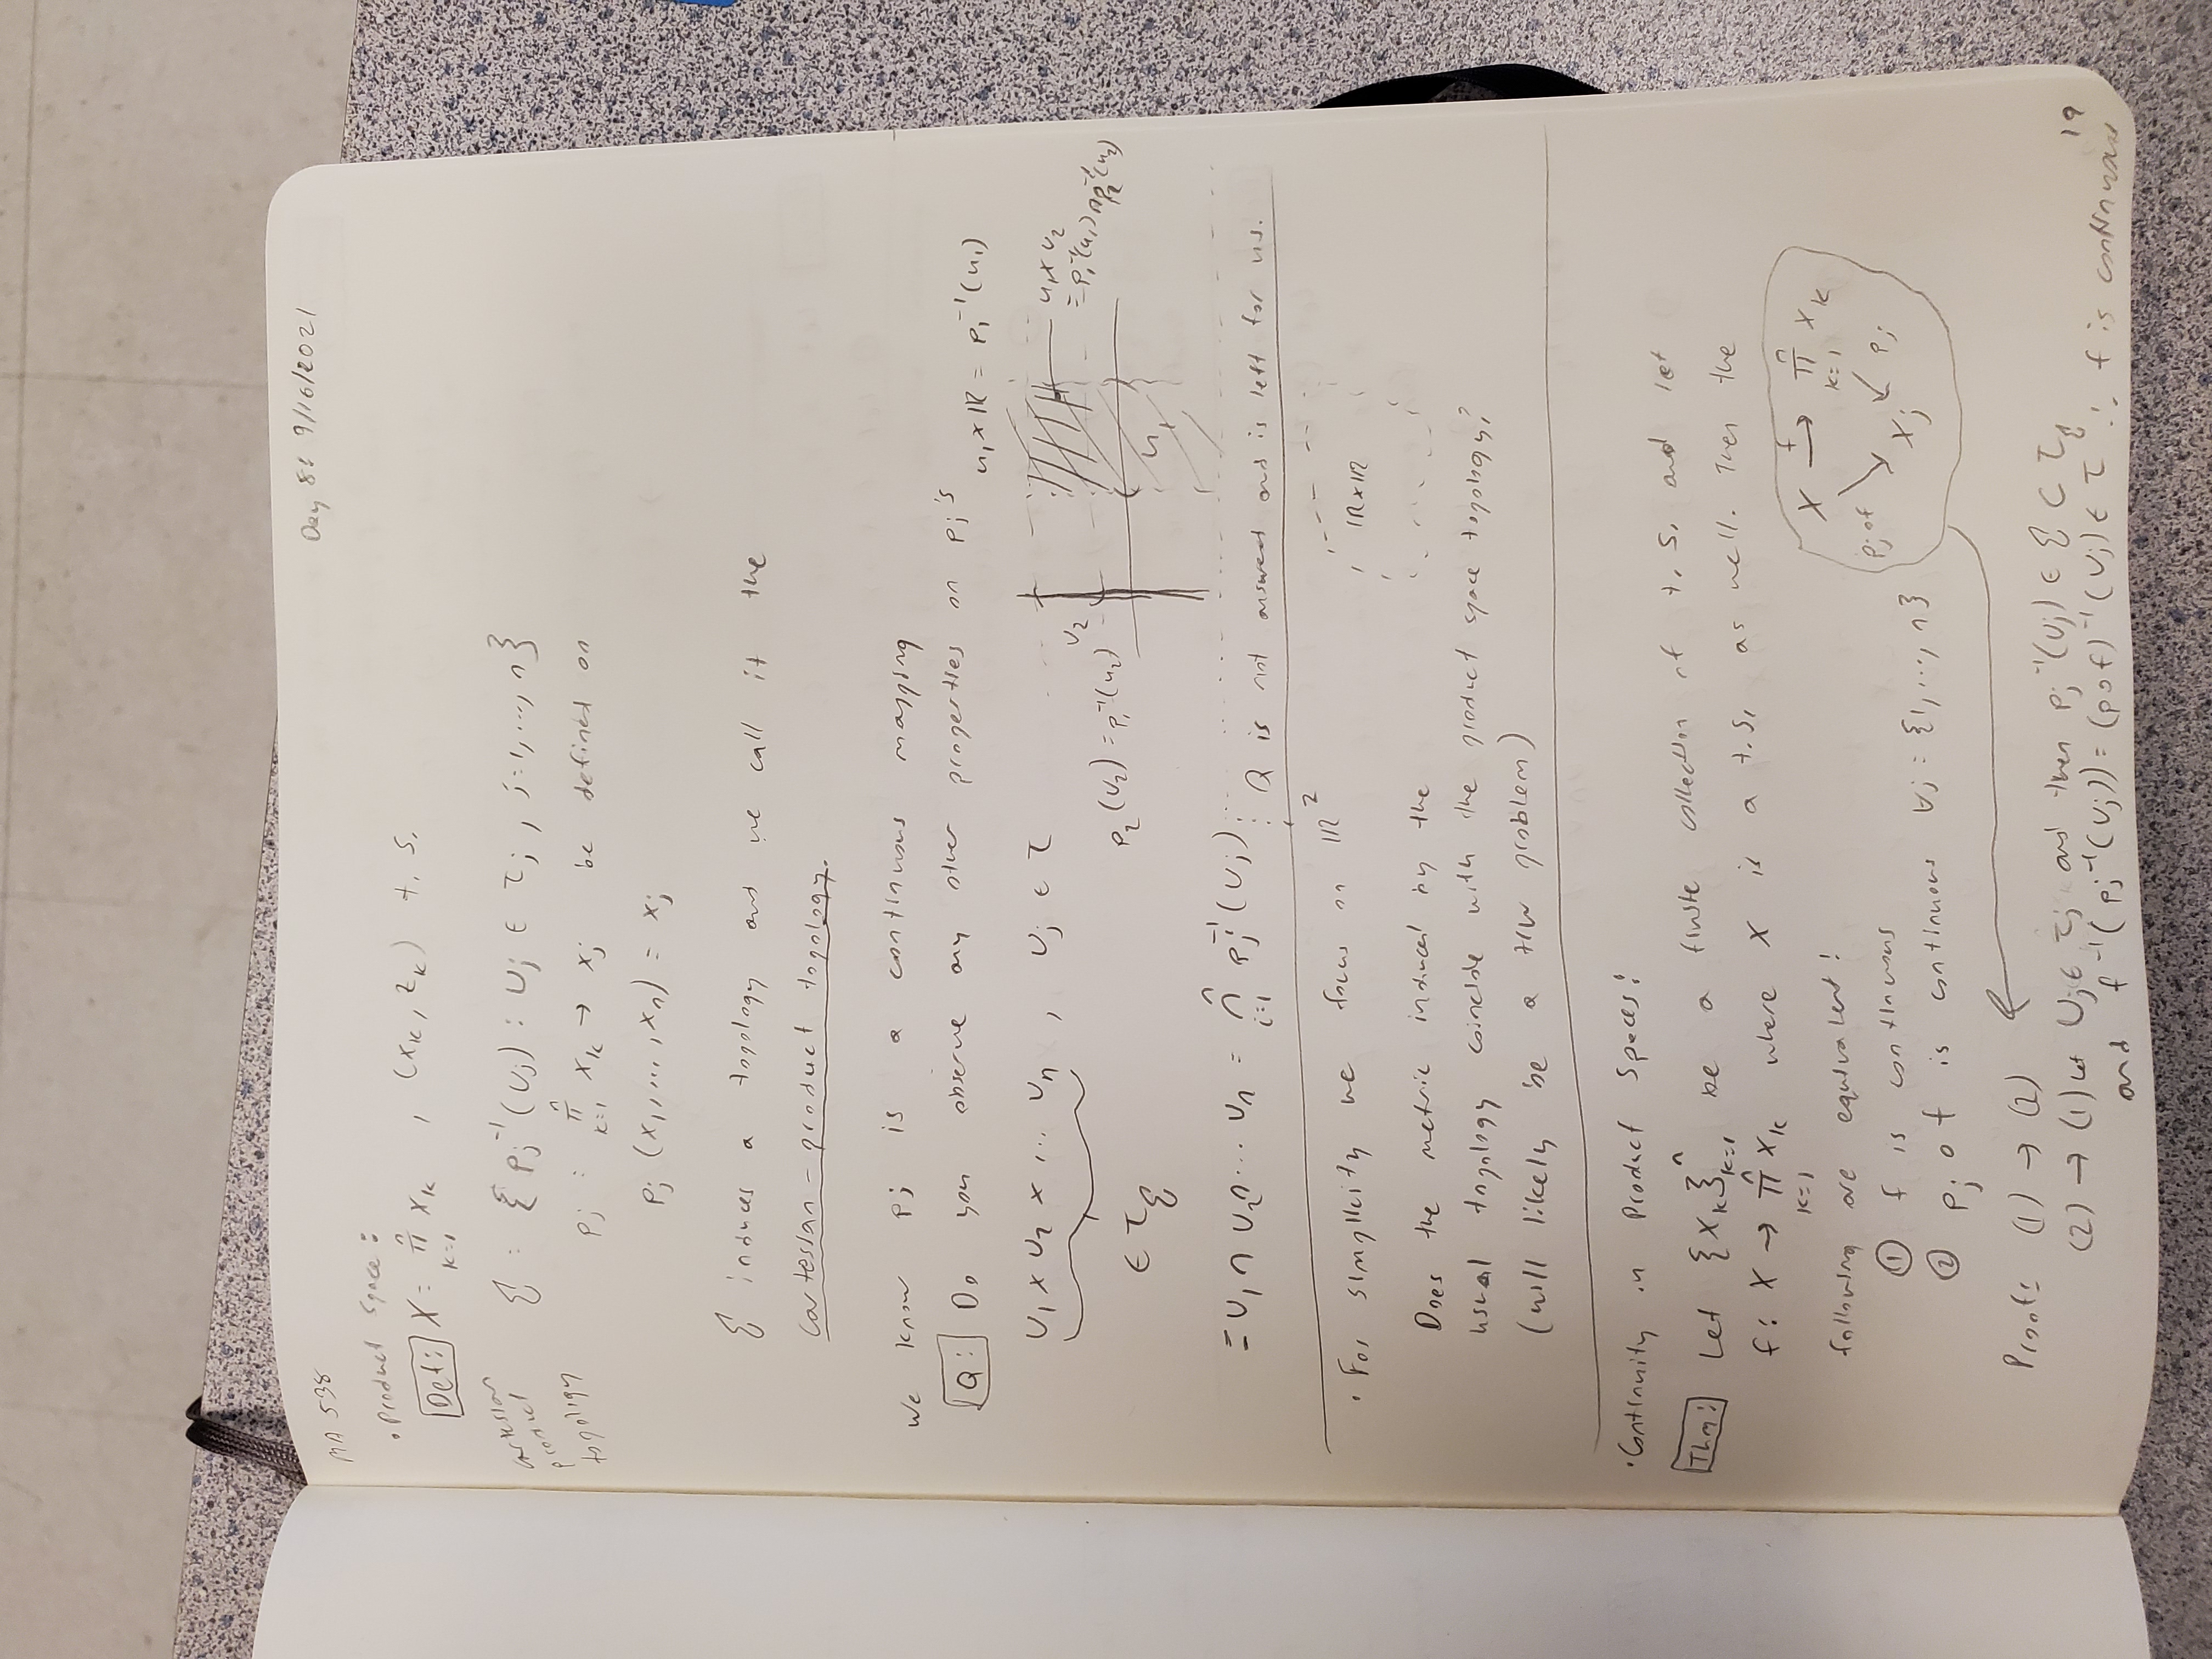 MA 538
Day 8: 9/16/2021
• Product Space:
Def: X = ∏_{k=1}^n X_k , (X_k, τ_k) t. s.
cartesian
product
topology
ξ : { p_j^{-1}(U_j) : U_j ∈ τ_j , j=1,...,n }
p_j : ∏_{k=1}^n X_k → X_j be defined on
p_j (x_1,...,x_n) = x_j
ξ induces a topology and we call it the
cartesian-product topology.
we know p_j is a continuous mapping
Q: Do you observe any other properties on p_j's
u_1 × ℝ = p_1^{-1}(u_1)
U_1 × U_2 × ... U_n , U_j ∈ τ
∈ τ_ξ
u_1 × v_2
= p_1^{-1}(u_1) ∩ p_2^{-1}(u_2)
v_2
p_2(v_2) = p_1^{-1}(u_2)
u_1
= U_1 ∩ U_2 ∩ ... U_n = ∩_{i=1}^n p_j^{-1}(U_j)
Q is not answered and is left for us.
• For simplicity we focus on ℝ^2
ℝ×ℝ
Does the metric induced by the
usual topology coincide with the product space topology?
(will likely be a HW problem)
• Continuity in Product Spaces:
Thm: Let {X_k}_{k=1}^n be a finite collection of t. s. and let
f: X → ∏_{k=1}^n X_k where X is a t.s. as well. Then the
following are equivalent:
① f is continuous
② p_j ∘ f is continuous ∀j = {1,...,n}
X →^f ∏_{k=1}^n X_k
p_j∘f ↘ ↙ p_j
X_j
Proof: (1) → (2)
(2) → (1) Let U_j ∈ τ_j and then p_j^{-1}(U_j) ∈ ξ ⊂ τ_ξ
and f^{-1}(p_j^{-1}(U_j)) = (p∘f)^{-1}(U_j) ∈ τ ∴ f is continuous
19